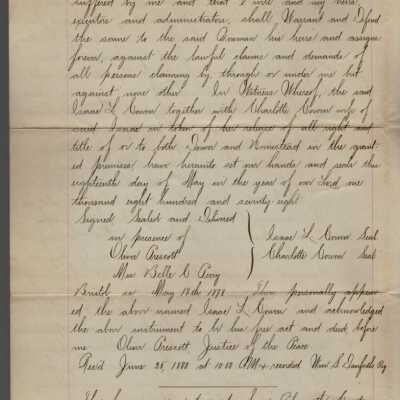 suffered by me and that I will and my heirs
executors and administrators, shall Warrant and Defend
the same to the said Dowman his heirs and assigns
forever, against the lawful claims and demands of
all persons claiming by, through or under me but
against none other. In Witness Whereof, the said
Isaac L Cowen together with Charlotte Cowen wife of
said Isaac in token of her release of all right and
title of or to both Dower and Homestead in the grant-
ed premises have hereunto set our hands and seals this
eighteenth day of May in the year of our Lord one
thousand eight hundred and seventy eight
Signed Sealed and Delivered
in presence of
Oliver Prescott
Miss Belle C Perry
Isaac L Cowen Seal
Charlotte Cowen Seal
Bristol ss May 18th 1878. Then personally appear-
ed the above named Isaac L Cowen and acknowledged
the above instrument to be his free act and deed, before
me Oliver Prescott, Justice of the Peace
Rec'd June 25, 1880 at AM & recorded Wm S. Reg